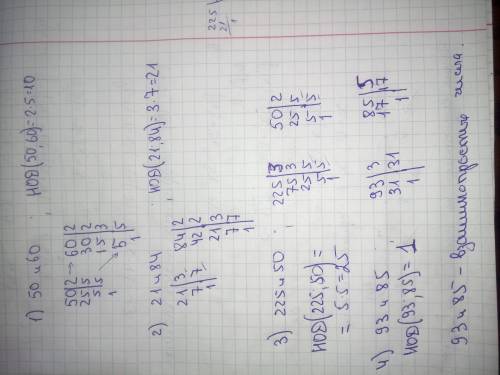 225
21
1) 50 и 60 НОД(50,60)=2·5=10
50|2 → 60|2
25|5 30|2
5|5 15|3
1 5|5
1
2) 21 и 84 НОД(21,84)=3·7=21
21|3 84|2
7|7 42|2
1 21|3
7|7
1
3) 225 и 50 225|3 50|2
75|3 25|5
НОД(225,50)= 25|5 5|5
= 5·5=25 5|5 1
1
4) 93 и 85 93|3 85|5
НОД(93,85)=1 31|31 17|17
1 1
93 и 85 - взаимнопростые числа.